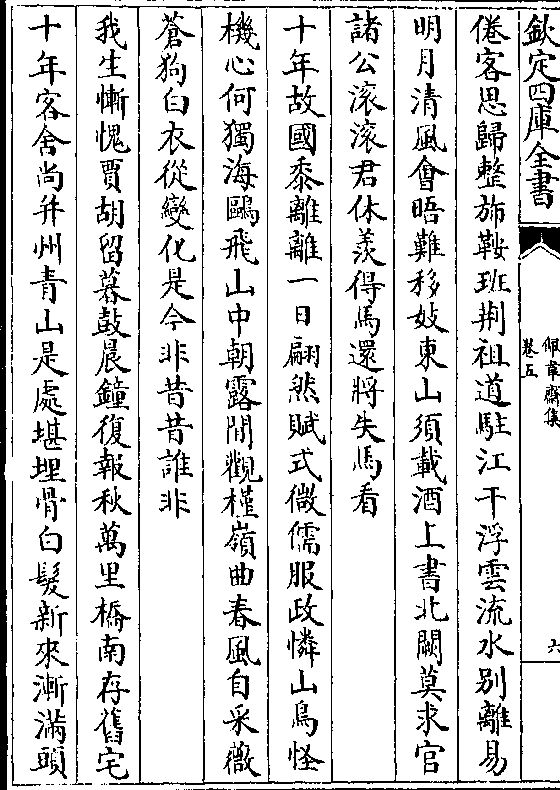 欽定四庫全書
佩韋齋集
卷五
六
倦客思歸整斾鞍班荆祖道駐江干浮雲流水别離易
明月清風會晤難移妓東山須載酒上書北闕莫求官
諸公滚滚君休羨得馬還將失馬看
十年故國黍離離一日翩然賦式微儒服政憐山鳥怪
機心何獨海鷗飛山中朝露閒觀槿嶺曲春風自采薇
蒼狗白衣從變化是今非昔昔誰非
我生慚愧賈胡留暮鼓晨鐘復報秋萬里橋南存舊宅
十年客舍尚并州青山是處堪埋骨白髮新來漸滿頭